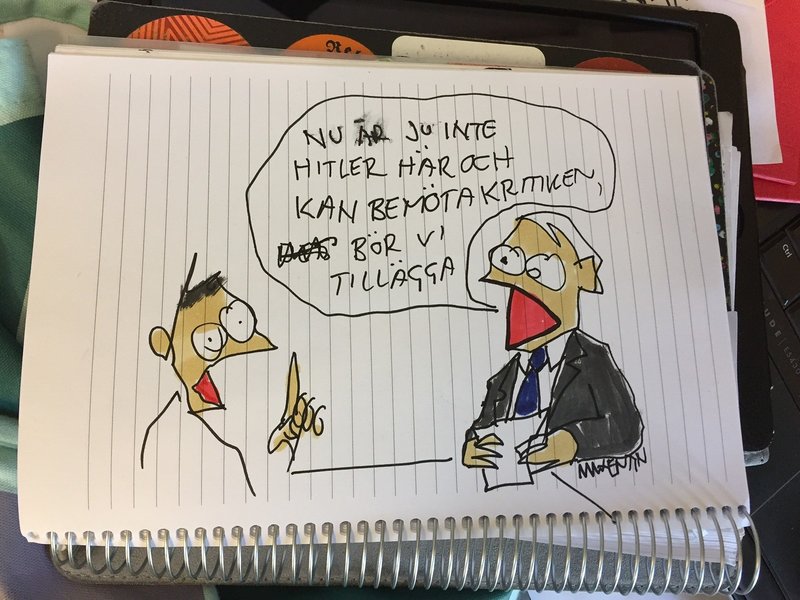 NU ÄR JU INTE
HITLER HÄR OCH
KAN BEMÖTA KRITIKEN,
BÖR VI
TILLÄGGA
Ctrl